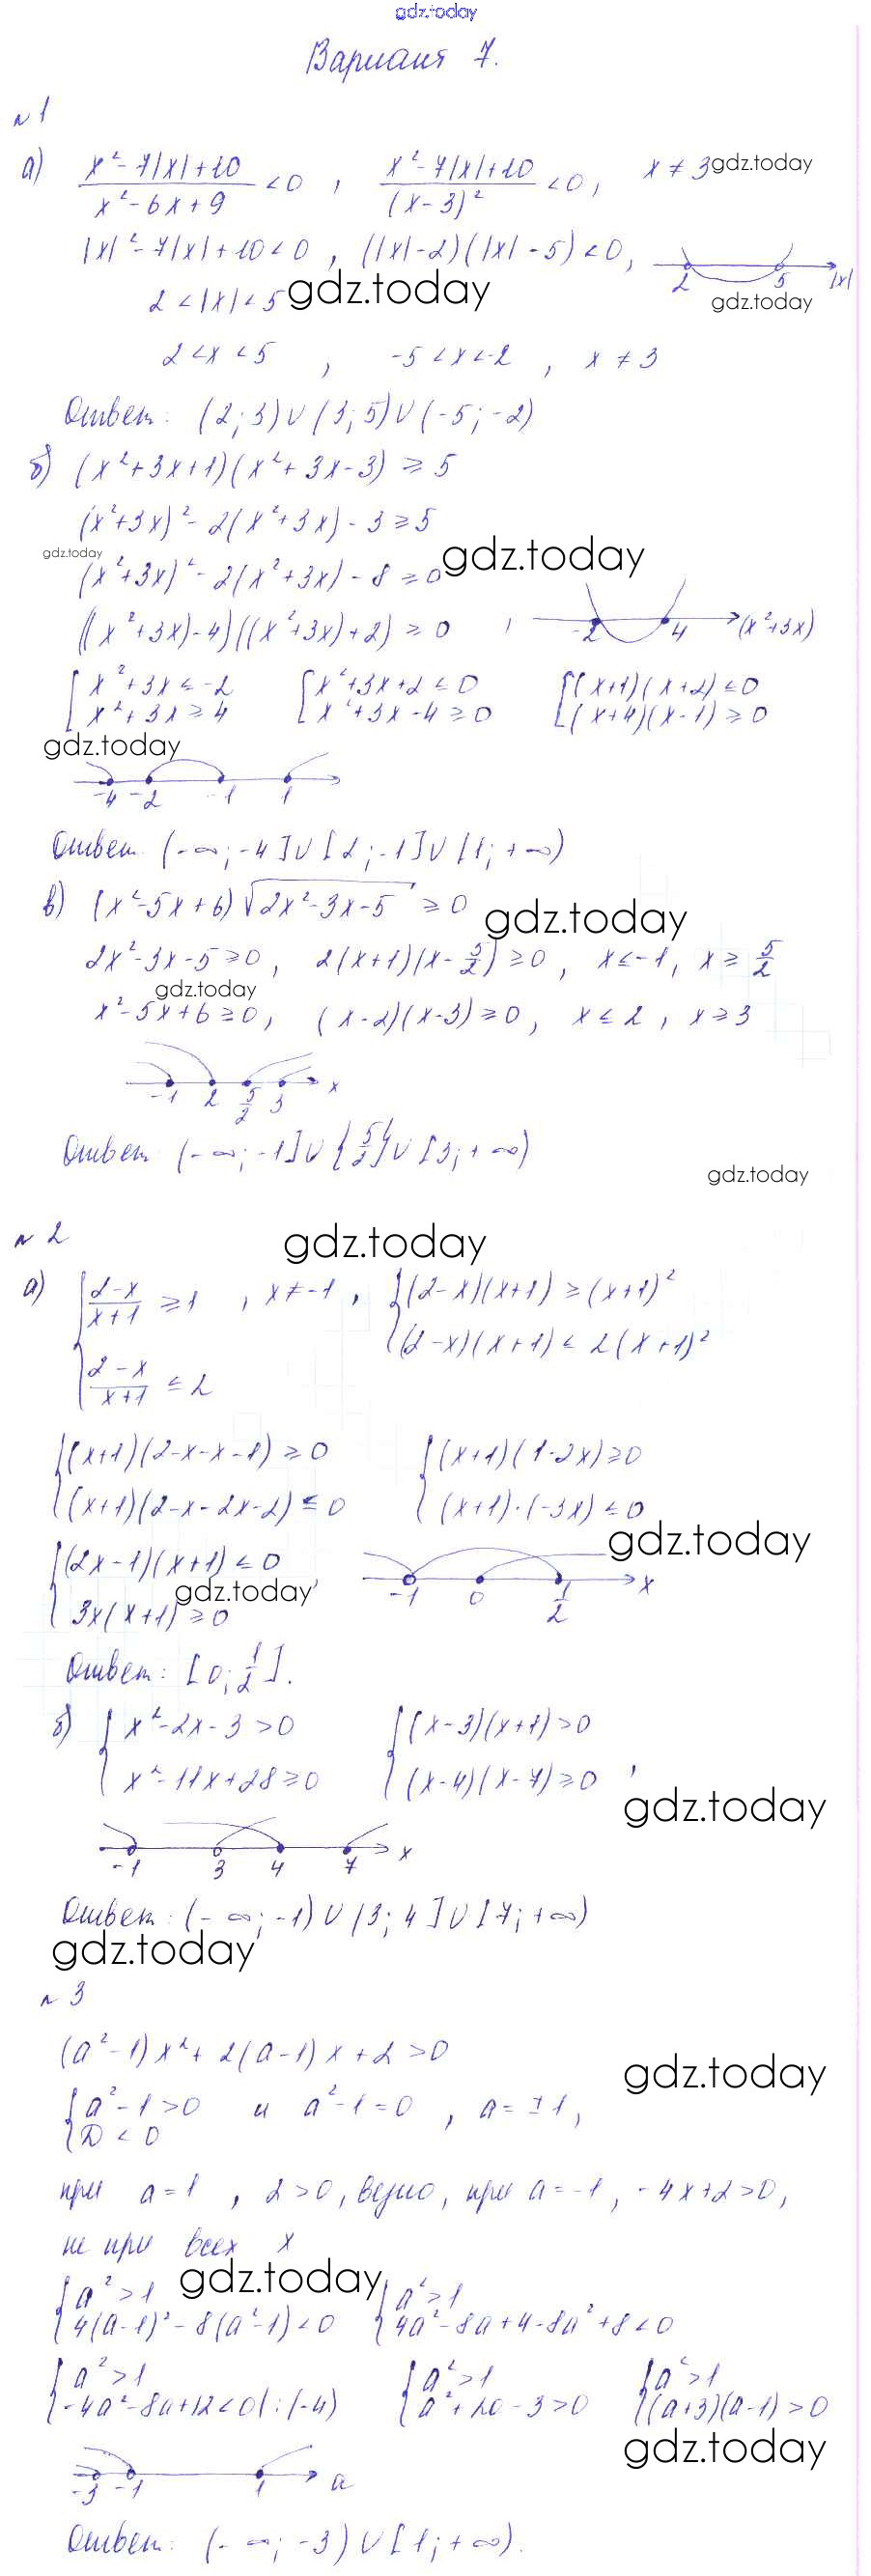 gdz.today
Вариант 7.
№1
а) (x² - 7|x| + 10)/(x² - 6x + 9) < 0 , (x² - 7|x| + 10)/(x - 3)² < 0, x ≠ 3 gdz.today
|x|² - 7|x| + 10 < 0 , (|x| - 2)(|x| - 5) < 0, 2 5 |x|
2 < |x| < 5 gdz.today gdz.today
2 < x < 5 , -5 < x < -2 , x ≠ 3
Ответ: (2; 3) ∪ (3; 5) ∪ (-5; -2)
б) (x² + 3x + 1)(x² + 3x - 3) ≥ 5
(x² + 3x)² - 2(x² + 3x) - 3 ≥ 5
gdz.today gdz.today
(x² + 3x)² - 2(x² + 3x) - 8 ≥ 0
((x² + 3x) - 4)((x² + 3x) + 2) ≥ 0 , -2 4 (x² + 3x)
[ x² + 3x ≤ -2 [ x² + 3x + 2 ≤ 0 [ (x+1)(x+2) ≤ 0
x² + 3x ≥ 4 x² + 3x - 4 ≥ 0 (x+4)(x-1) ≥ 0
gdz.today
-4 -2 -1 1
Ответ (-∞; -4] ∪ [2; -1] ∪ [1; +∞)
в) (x² - 5x + 6) √(2x² - 3x - 5) ≥ 0 gdz.today
2x² - 3x - 5 ≥ 0, 2(x+1)(x - 5/2) ≥ 0, x ≤ -1, x ≥ 5/2
gdz.today
x² - 5x + 6 ≥ 0, (x-2)(x-3) ≥ 0, x ≤ 2, x ≥ 3
-1 2 5/2 3 x
Ответ: (-∞; -1] ∪ {5/2} ∪ [3; +∞)
gdz.today
№2 gdz.today
а) { (2-x)/(x+1) ≥ 1 , x ≠ -1 , { (2-x)(x+1) ≥ (x+1)²
(2-x)/(x+1) ≤ 2 (2-x)(x+1) ≤ 2(x+1)²
{ (x+1)(2-x-x-1) ≥ 0 { (x+1)(1-2x) ≥ 0
(x+1)(2-x-2x-2) ≤ 0 (x+1)·(-3x) ≤ 0
gdz.today
{ (2x-1)(x+1) ≤ 0 , -1 0 1/2 x
gdz.today
3x(x+1) ≥ 0
Ответ: [0; 1/2].
б) { x² - 2x - 3 > 0 { (x-3)(x+1) > 0
x² - 11x + 28 ≥ 0 (x-4)(x-7) ≥ 0 ,
gdz.today
-1 3 4 7 x
Ответ: (-∞; -1) ∪ (3; 4] ∪ [7; +∞)
gdz.today
№3
(a² - 1)x² + 2(a-1)x + 2 > 0
gdz.today
{ a² - 1 > 0 и a² - 1 = 0 , a = ±1,
D < 0
при a = 1 , 2 > 0, верно, при a = -1, -4x + 2 > 0,
не при всех x
gdz.today
{ a² > 1 { a² > 1
4(a-1)² - 8(a²-1) < 0 4a² - 8a + 4 - 8a² + 8 < 0
{ a² > 1 { a² > 1 { a² > 1
-4a² - 8a + 12 < 0 | : (-4) a² + 2a - 3 > 0 (a+3)(a-1) > 0
gdz.today
-3 -1 1 a
Ответ: (-∞; -3) ∪ [1; +∞).